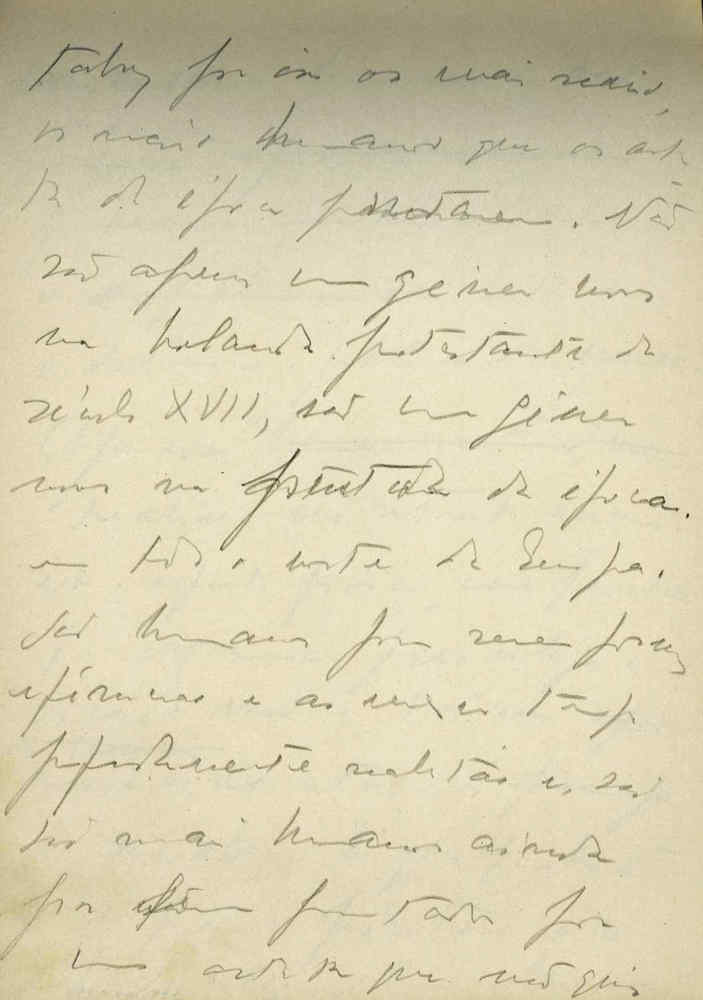 Talvez por isso os mais reais,
os mais humanos que os artis
tas da época pintaram. Não
são apenas um género novo
na holanda protestante do
século XVII, são um género
novo na pintura da época.
em todo o norte da Europa.
São humanos por serem
efémeros e ao mesmo temp
profundamente realistas e, são
são mais humanos ainda
por pintados por
um artista que não quis